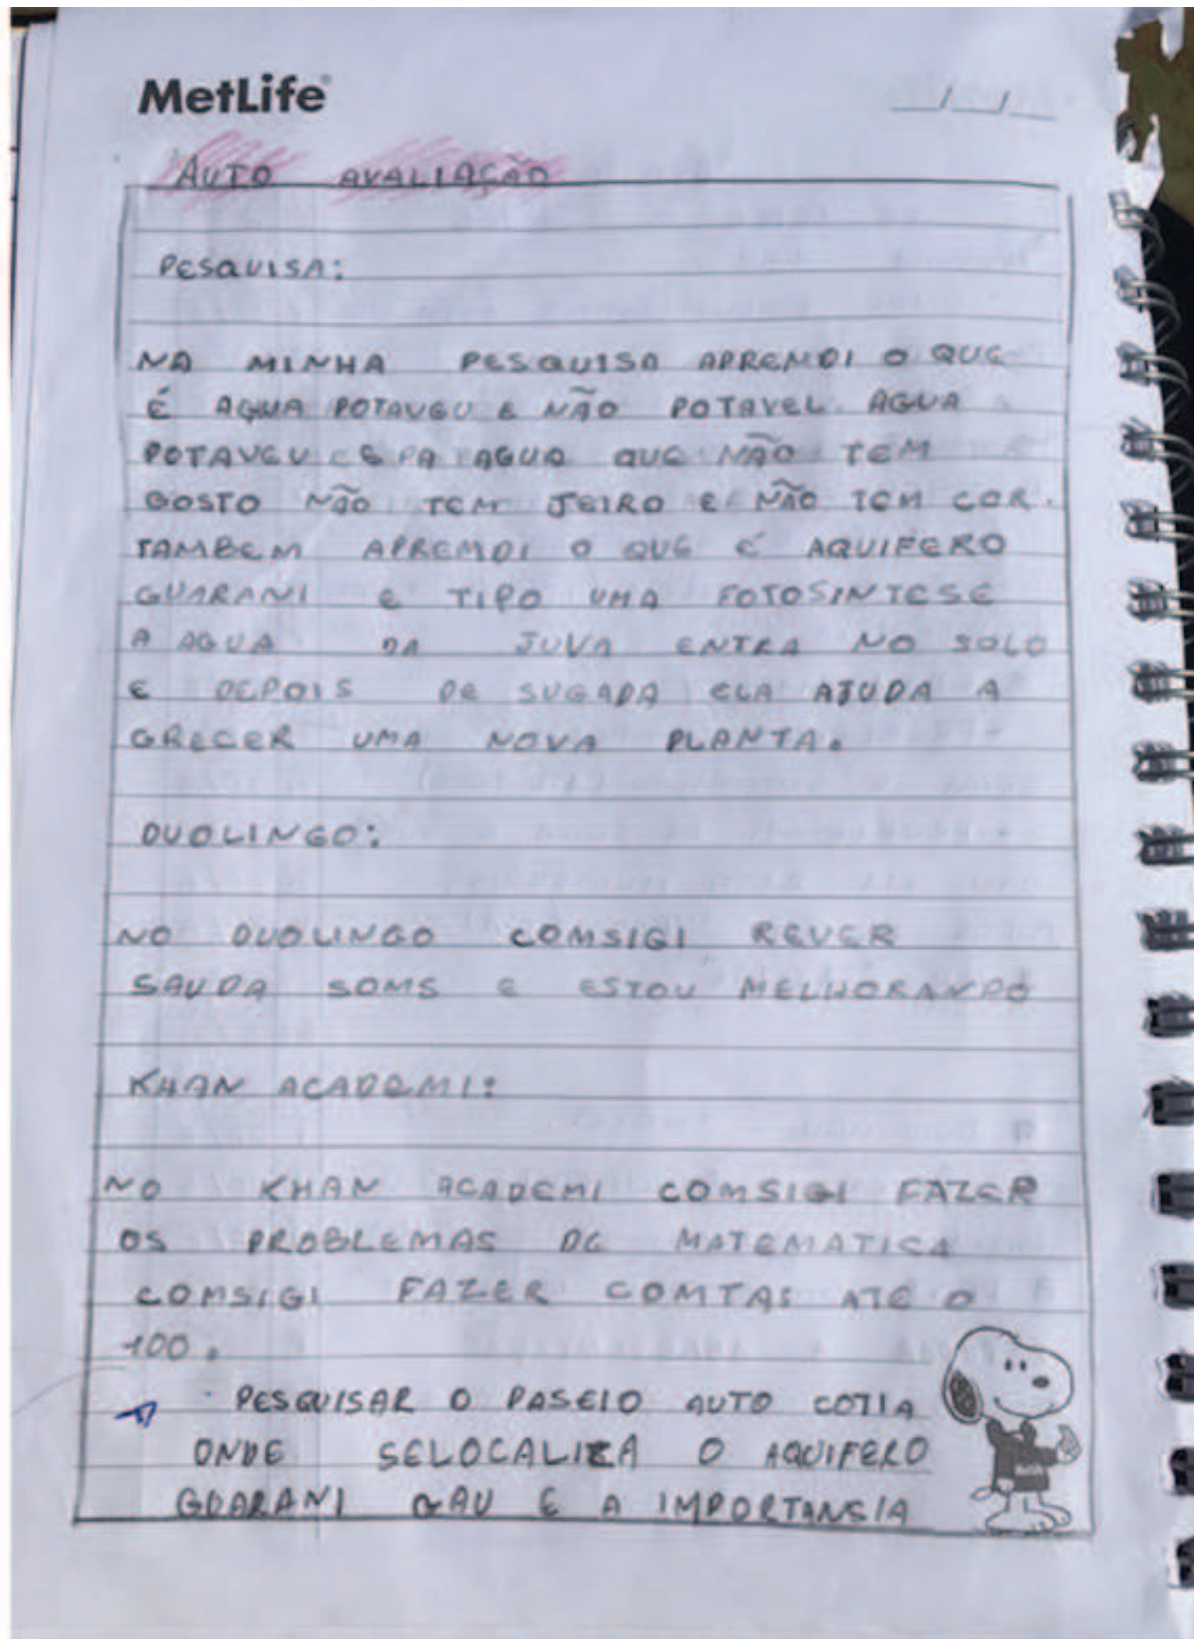 MetLife
AUTO AVALIAÇÃO
PESQUISA:
NA MINHA PESQUISA APREMDI O QUE
É AGUA POTAVEU E NÃO POTAVEL. AGUA
POTAVEU AGUA QUE NÃO TEM
GOSTO NÃO TEM JEIRO E NÃO TEM COR.
TAMBEM APREMDI O QUE É AQUIFERO
GUARANI E TIPO UMA FOTOSINTESE
A AGUA DA JUVA ENTRA NO SOLO
E DEPOIS DE SUGADA ELA AJUDA A
GRECER UMA NOVA PLANTA.
DUOLINGO:
NO DUOLINGO COMSIGI REVER
SAUDA SOMS E ESTOU MELHORANDO
KHAN ACADEMI:
NO KHAN ACADEMI COMSIGI FAZER
OS PROBLEMAS DE MATEMATICA
COMSIGI FAZER COMTAS ATE O
100.
PESQUISAR O PASEIO AUTO COTIA
ONDE SELOCALIZA O AQUIFERO
GUARANI QAU E A IMPORTANSIA